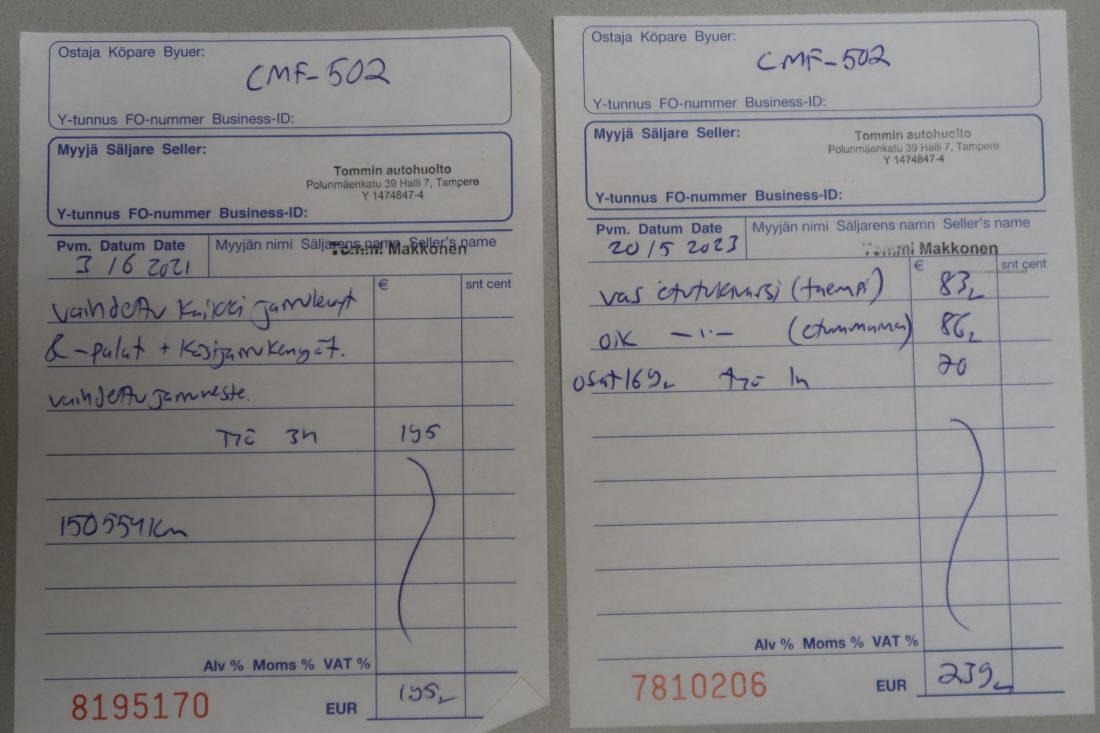 Ostaja Köpare Byuer:
CMF-502
Y-tunnus FO-nummer Business-ID:
Myyjä Säljare Seller:
Tommin autohuolto
Polunmäenkatu 39 Halli 7, Tampere
Y 1474847-4
Y-tunnus FO-nummer Business-ID:
Pvm. Datum Date
Myyjän nimi Säljarens namn Seller's name
Tommi Makkonen
3 /6 2021
€
snt cent
vaihdettu kaikki jarrulevyt
&-palat + käsijarrukengät.
vaihdettu jarruneste.
Työ 3h 195
150554km
Alv % Moms % VAT %
8195170
EUR
195,-
Ostaja Köpare Byuer:
CMF-502
Y-tunnus FO-nummer Business-ID:
Myyjä Säljare Seller:
Tommin autohuolto
Polunmäenkatu 39 Halli 7, Tampere
Y 1474847-4
Y-tunnus FO-nummer Business-ID:
Pvm. Datum Date
Myyjän nimi Säljarens namn Seller's name
20/5 2023
Tommi Makkonen
€
snt cent
vas etutukivarsi (taempi) 83,-
oik -"- (etummainen) 86,-
osat 169,- työ 1h 70
Alv % Moms % VAT %
7810206
EUR
239,-